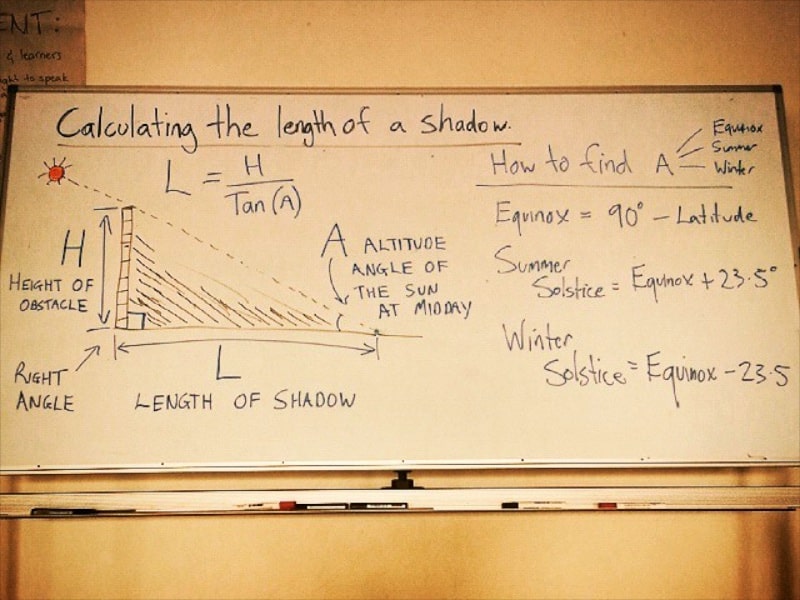 ENT:
& learners
to speak
Calculating the length of a shadow.
L = H
Tan (A)
H
HEIGHT OF
OBSTACLE
A ALTITUDE
ANGLE OF
THE SUN
AT MIDDAY
RIGHT
ANGLE
L
LENGTH OF SHADOW
How to find A
Equinox
Summer
Winter
Equinox = 90° - Latitude
Summer
Solstice = Equinox + 23.5°
Winter
Solstice = Equinox - 23.5